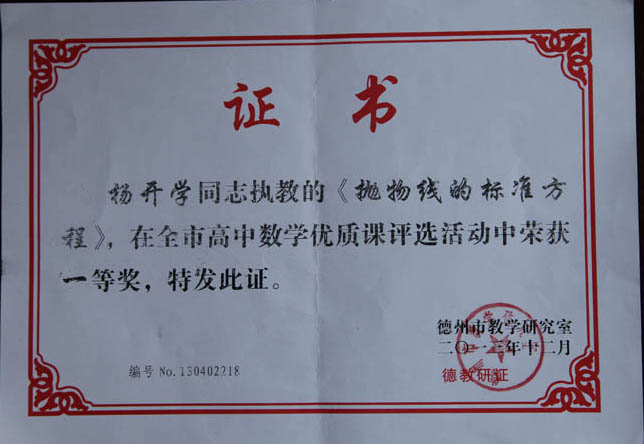 证书
杨开学同志执教的《抛物线的标准方
程》，在全市高中数学优质课评选活动中荣获
一等奖，特发此证。
德州市教学研究室
二〇一三年十二月
编号 No. 130402218
德教研证